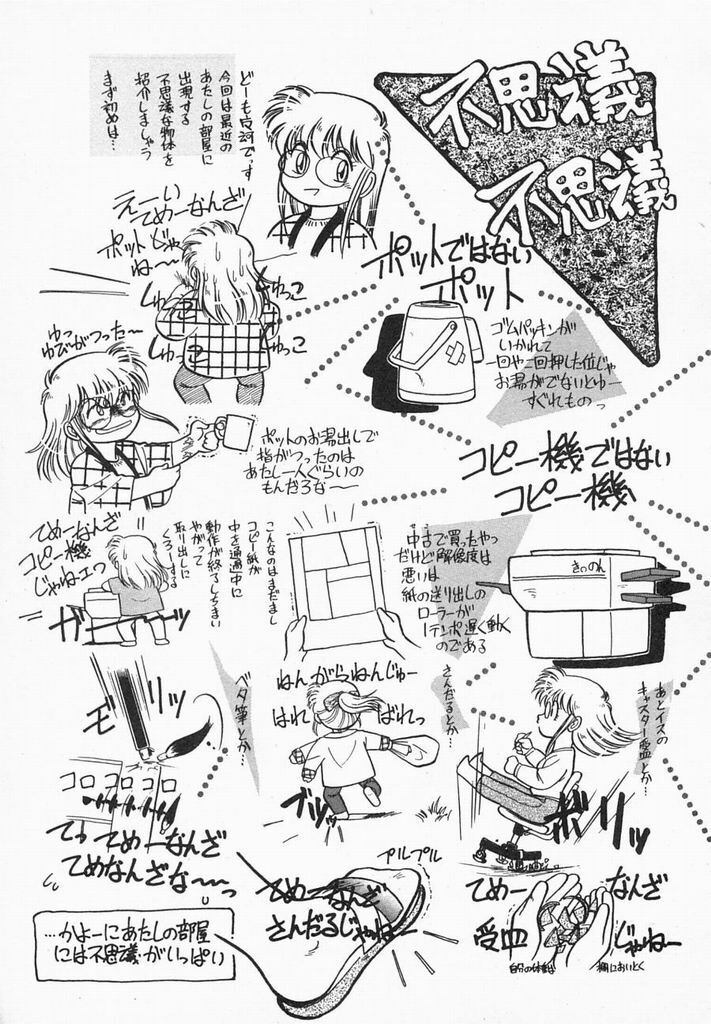 不思議
不思議
どーも白河です
今回は最近の
あたしの部屋に
出現する
不思議な物体を
紹介しましょう
まず初めは…
ポットではない
ポット
ゴムパッキンが
いかれて
一回や一回押した位じゃ
お湯がでないとゆー
すぐれもの
えーい
てめーなんざ
ポットじゃ
ね〜〜
しゅっこ
しゅっこ
しゅっこ
しゅっこ
ゆっ
ゆびがつった〜
ポットのお湯出しで
指がつったのは
あたし一人ぐらいの
もんだろな〜〜
コピー機ではない
コピー機
きゃのん
中古で買ったやつ
だけど解像度は
悪いは
紙の送り出しの
ローラーが
1テンポ遅く動く
のである
こんなのはまだまし
コピー紙が
中を通過中に
動作が終了しちまい
やがって
取り出しに
くろーする
てめーなんざ
コピー機
じゃねェっ
ガガーー
あとイスの
キャスター受皿
とか…
ボリッ
てめー
なんざ
受皿
じゃねー
さんだるとか…
ねんがらねんじゅー
はれ
ばれっ
ブッ
プルプル
てめーなんざ
さんだるじゃねー
ベタ筆とか…
モソリッ
コロコロコロ
てっ てめーなんざ
てめなんざな〜〜っ
…かよーにあたしの部屋
には不思議がいっぱい